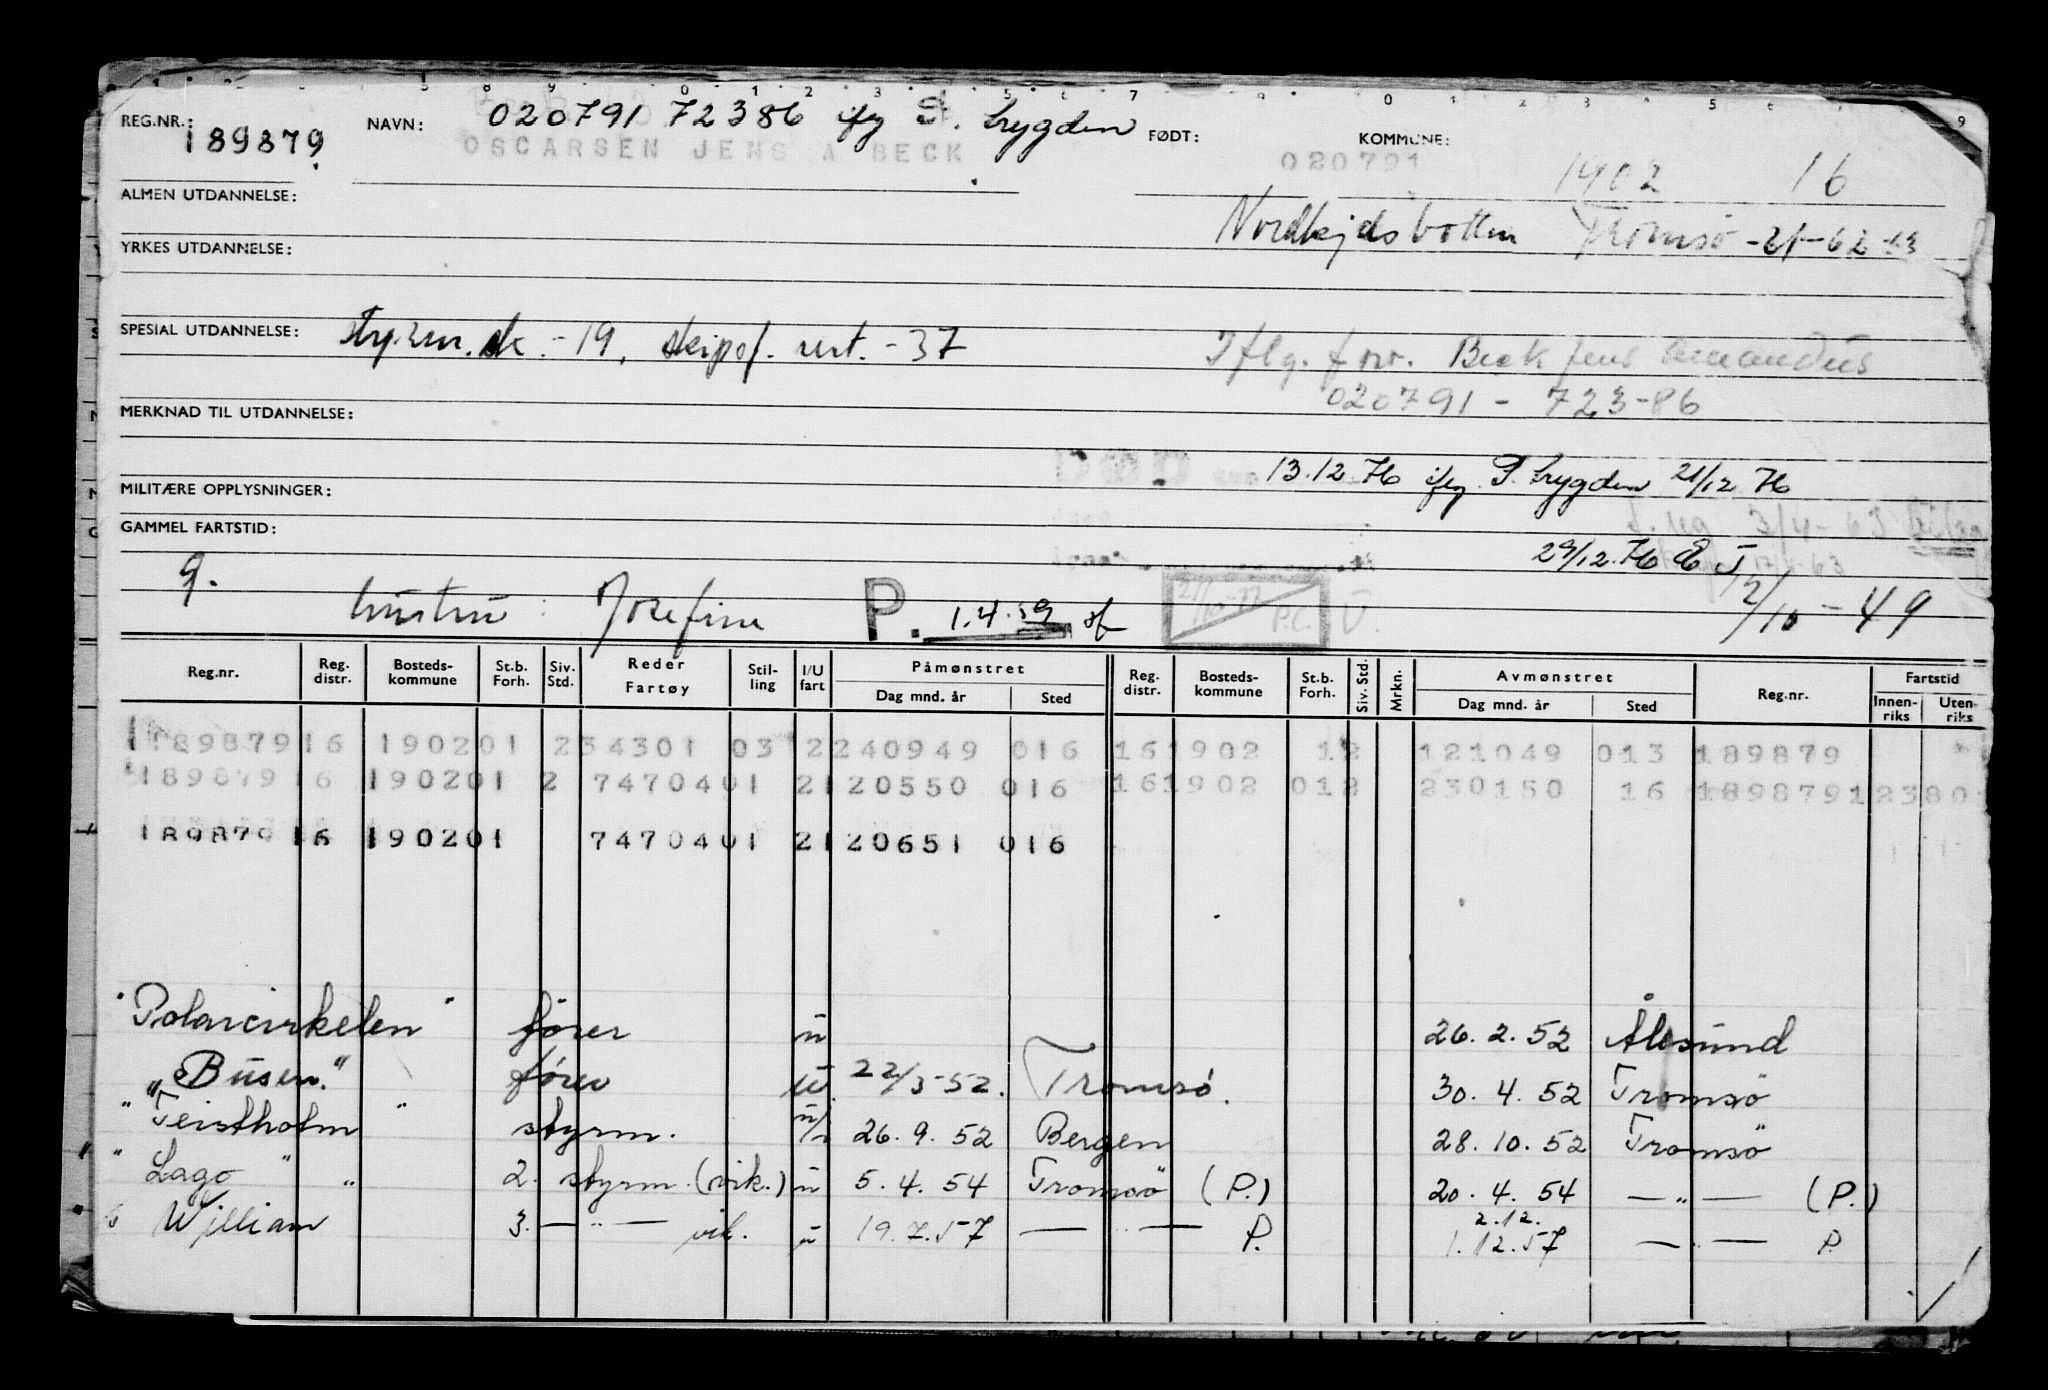 REG.NR.: 189879 NAVN: 020791 72386 ifg P. trygden FØDT: KOMMUNE:
OSCARSEN JENS A BECK 020791 1902 16
ALMEN UTDANNELSE:
Tromsø -21-62-
YRKES UTDANNELSE:
SPESIAL UTDANNELSE: styrm. sk. -19, skipsf. sert. -37 Iflg. fnr. Beck Jens Amandus
020791 - 723-86
MERKNAD TIL UTDANNELSE:
DØD. 13.12.76 ifg P. trygden 21/12 76
MILITÆRE OPPLYSNINGER:
3/4-63
GAMMEL FARTSTID: 29/12.76
g. hustru: Josefine P. 1.4.59 P.C. U. 12/10-49
Reg.nr. Reg. distr. Bosteds-kommune St.b. Forh. Siv. Std. Reder Fartøy Stil-ling I/U fart Påmønstret Dag mnd. år Sted Reg. distr. Bosteds-kommune St.b. Forh. Siv. Std. Mrkn. Avmønstret Dag mnd. år Sted Reg.nr. Fartstid Innen-riks Uten-riks
189879 16 1902 01 2 34301 03 2 240949 016 16 1902 12 121049 013 189879
189879 16 1902 01 2 74704 01 2 120550 016 16 1902 012 230150 16 189879 12380
189879 16 1902 01 74704 01 2 120651 016
"Polarcirkelen" fører u 26.2.52 Ålesund
"Büsen." fører u 22/3-52. Tromsø. 30.4.52 Tromsø
"Teistholm" styrm. u/i 26.9.52 Bergen 28.10.52 Tromsø
"Lago" " 2. styrm. (vik.) u 5.4.54 Tromsø (P.) 20.4.54 —"— (P.)
William 3. —"— vik. u 19.7.57 —"— P. 2.12. 1.12.57 —"— P.